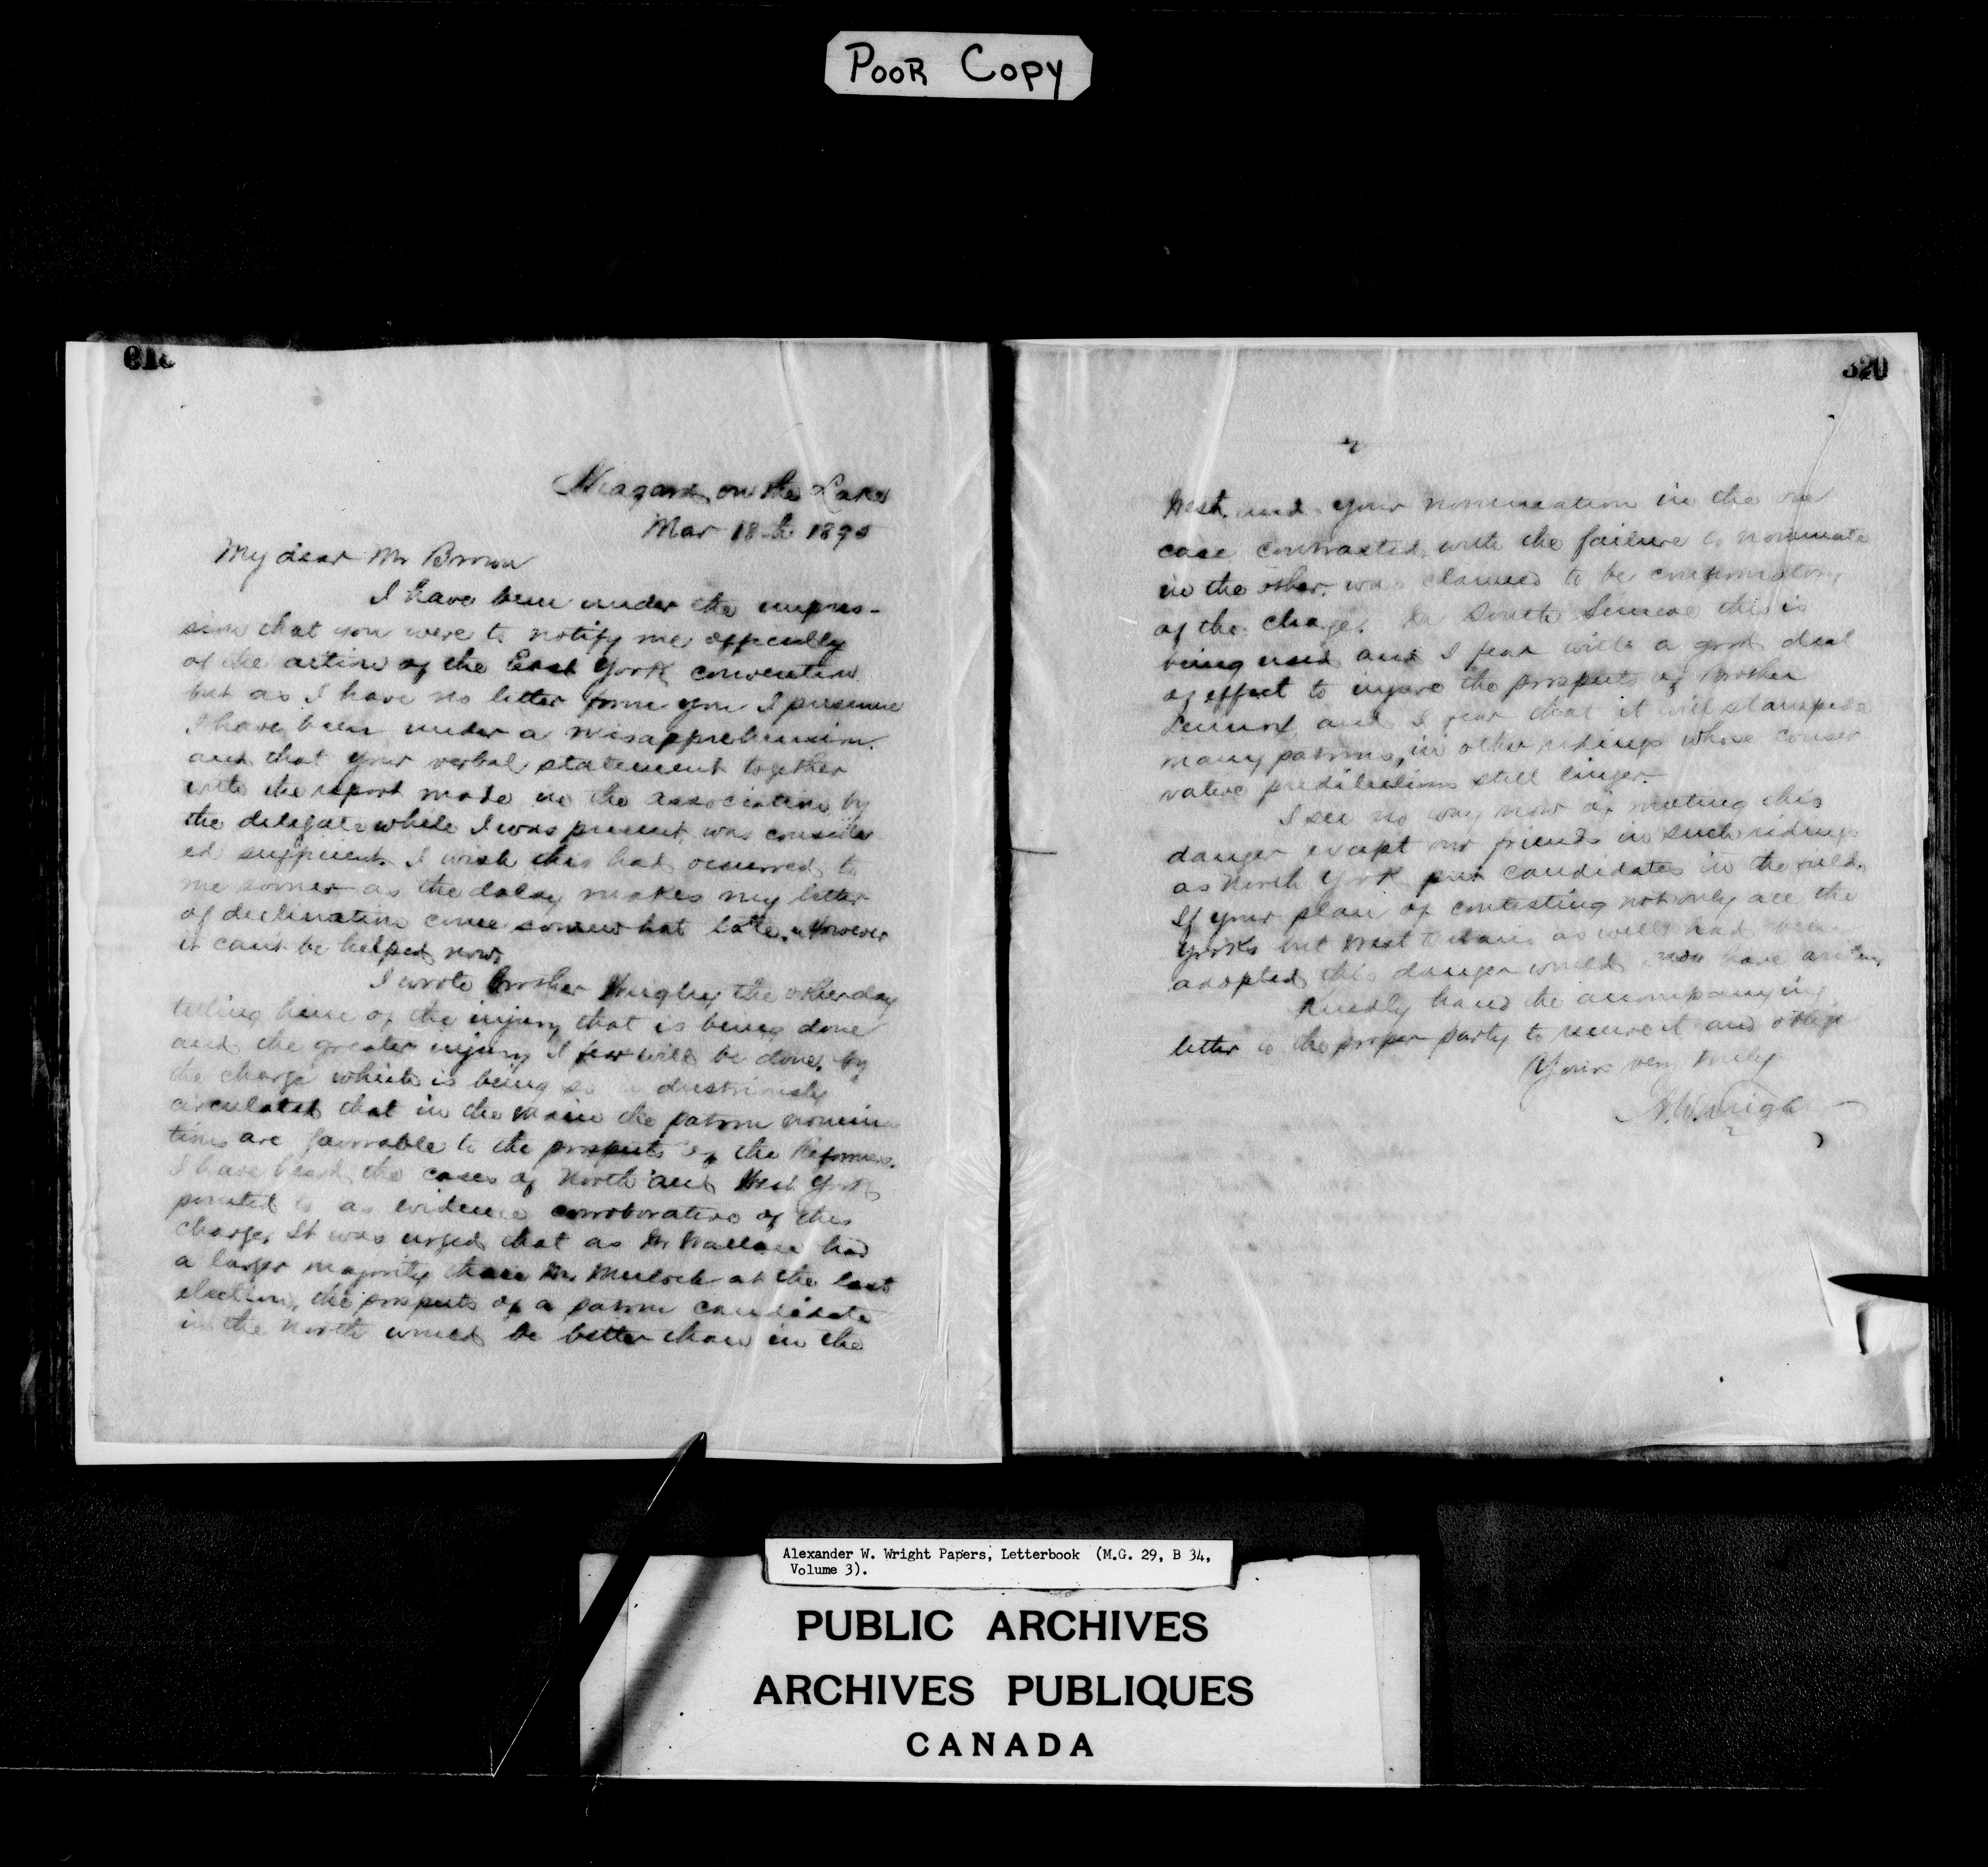 POOR COPY
320
Niagara on the Lake
Mar 18th 1895
My dear Mr Brown
I have been under the impres-
sion that you were to notify me officially
of the action of the East York convention
but as I have no letter from you I presume
I have been under a misapprehension.
and that your verbal statement together
with the report made to the association by
the delegate while I was present was consider
ed sufficient. I wish this had occurred to
me sooner as the delay makes my letter
of declination come somewhat late. However
it can't be helped now.
I wrote Brother the other day
telling him of the injury that is being done
and the greater injury I fear will be done, by
the charge which is being so industriously
circulated that in the main the patron nomina
tions are favorable to the prospects of the Reformers.
I have heard the cases of North and West York
pointed to as evidence corroborative of this
charge. It was urged that as Mr Wallace had
a larger majority than Mr. Mulock at the last
election, the prospects of a patron candidate
in the North would be better than in the
2
West. and your nomination in the one
case contrasted with the failure to nominate
in the other. was claimed to be confirmatory
of the charge. In South Simcoe this is
being used and I fear with a good deal
of effect to injure the prospects of Brother
Lennox and I fear that it will stampede
many patrons, in other ridings whose conser
vative predilections still linger.
I see no way now of meeting this
danger except our friends in such ridings
as North York put candidates in the field.
If your plan of contesting not only all the
Yorks but West Ontario as well had been
adopted this danger would not have arisen
Kindly hand the accompanying
letter to the proper party to receive it and oblige
Yours very truly
A.W. Wright
Alexander W. Wright Papers, Letterbook (M.G. 29, B 34,
Volume 3).
PUBLIC ARCHIVES
ARCHIVES PUBLIQUES
CANADA